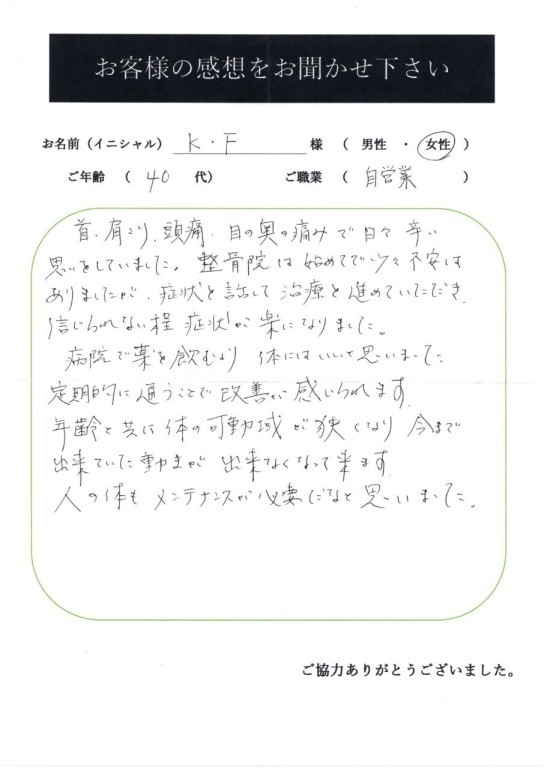 お客様の感想をお聞かせ下さい
お名前（イニシャル） K・F 様 （ 男性 ・ 女性 ）
ご年齢 （ 40 代） ご職業 （ 自営業 ）
首、肩こり、頭痛、目の奥の痛みで日々辛い
思いをしていました。整骨院は始めてで少々不安は
ありましたが、症状を話して治療を進めていただき、
信じられない程症状が楽になりました。
病院で薬を飲むより体にはいいと思いました
定期的に通うことで改善が感じられます。
年齢と共に体の可動域が狭くなり今まで
出来ていた動きが出来なくなって来ます。
人の体もメンテナンスが必要だなと思いました。
ご協力ありがとうございました。